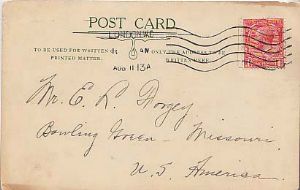 POST CARD
LONDON. W.C
TO BE USED FOR WRITTEN OR ONLY THE ADDRESS TO BE
PRINTED MATTER. WRITTEN HERE.
AUG 11 13A
Mr. E. L. Dorsey
Bowling Green - Missouri.
U. S. America.